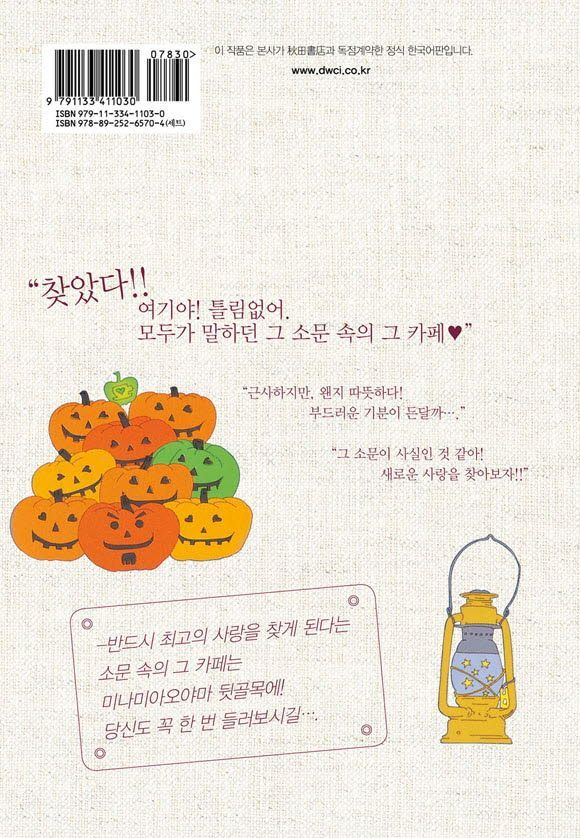 07830>
9 791133 411030
ISBN 979-11-334-1103-0
ISBN 978-89-252-6570-4(세트)
이 작품은 본사가 秋田書店과 독점계약한 정식 한국어판입니다.
www.dwci.co.kr
“찾았다!!
여기야! 틀림없어.
모두가 말하던 그 소문 속의 그 카페♥”
“근사하지만, 왠지 따뜻하다!
부드러운 기분이 든달까….”
“그 소문이 사실인 것 같아!
새로운 사랑을 찾아보자!!”
–반드시 최고의 사랑을 찾게 된다는
소문 속의 그 카페는
미나미아오야마 뒷골목에!
당신도 꼭 한 번 들러보시길….